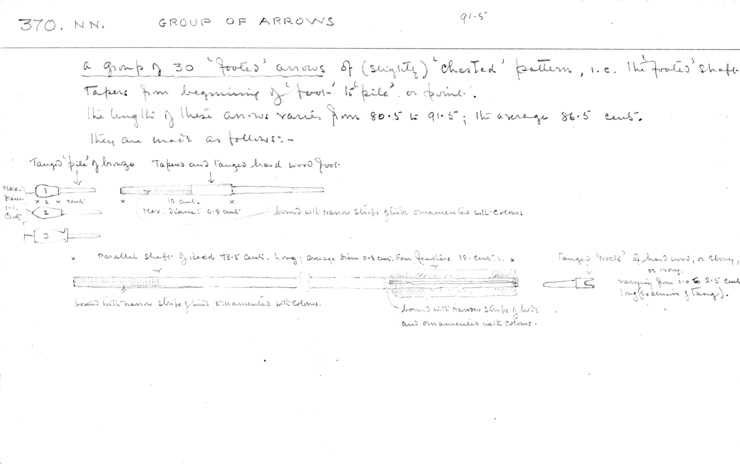 370. NN. GROUP OF ARROWS 91.5
a group of 30 'footed' arrows of (slightly) 'chested' pattern, i.e. the 'footed' shaft
tapers from beginning of 'foot' to 'pile', or point.
The length of these arrows varies from 80.5 to 91.5; the average 86.5 cent.
They are made as follows:-
Tanged 'pile' of bronze Tapered and tanged hard wood foot.
Max. Diam. 1.1. Cent.
1
x 2 x cent
2
3
x 15 cent. x
Max. Diam: 0.8 cent bound with narrow strips of hide ornamented with colours
x Parallel shaft of reed 73.5 cent. long; average diam 0.8 cent. Four feathers 15. cent. L. x
bound with narrow strips of hide ornamented with colours.
bound with narrow strips of hide
and ornamented with colour.
Tanged 'nock' of hard wood, or ebony,
or ivory.
varying from 1.0 to 2.5 cent
long (exclusive of tang).